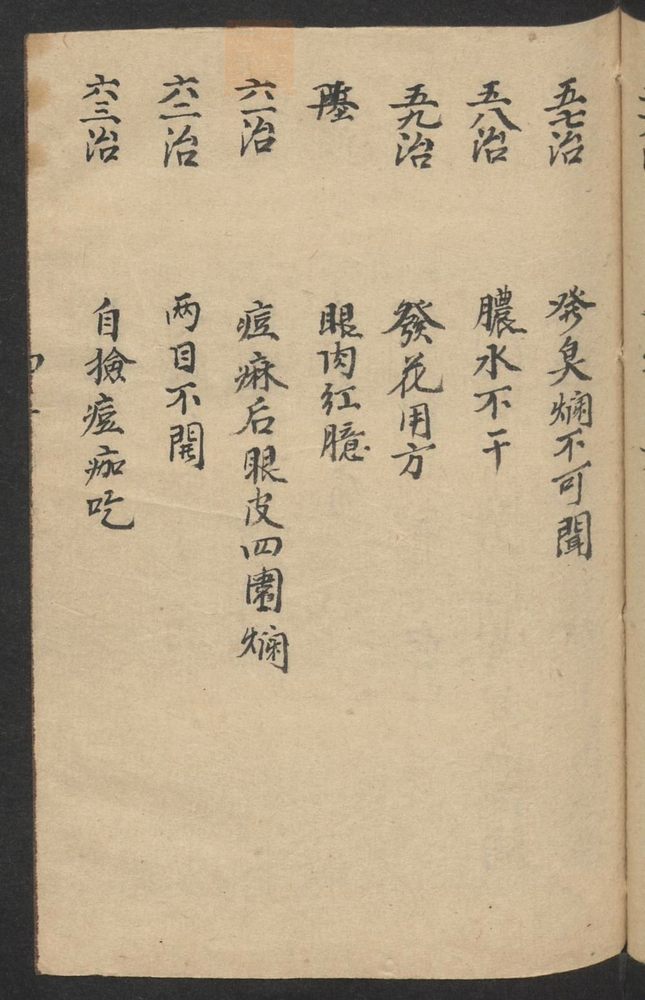 五七治 發臭爛不可聞
五八治 膿水不干
五九治 發花用方
眼肉红臆
六一治 痘麻后眼皮四圍爛
六二治 两目不開
六三治 自撿痘痂吃